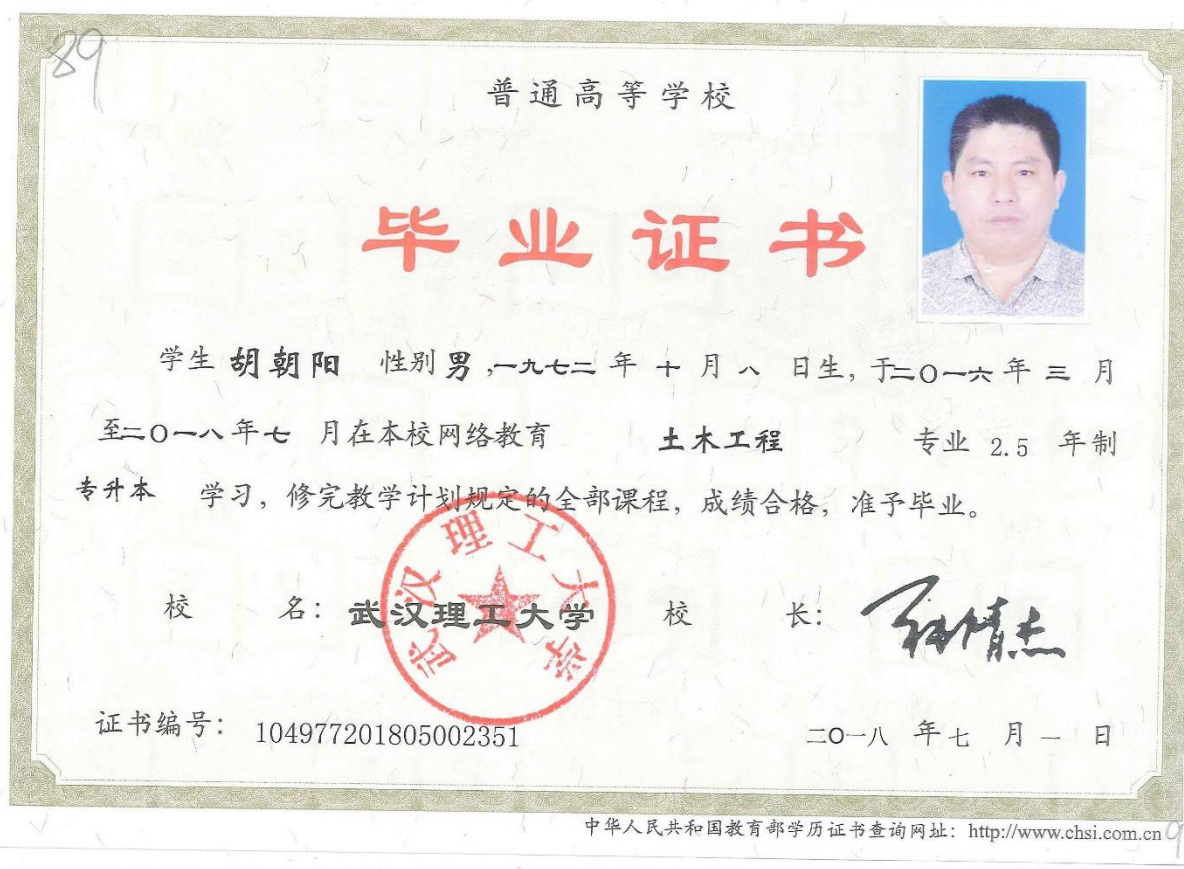 89
普通高等学校
毕业证书
学生 胡朝阳 性别 男 ,一九七二 年 十 月 八 日生, 于二〇一六 年 三 月
至二〇一八 年 七 月在本校网络教育 土木工程 专业 2.5 年制
专升本 学习, 修完教学计划规定的全部课程, 成绩合格, 准予毕业。
武汉理工大学
校 名: 武汉理工大学 校 长:
证书编号: 104977201805002351 二〇一八 年 七 月 一 日
中华人民共和国教育部学历证书查询网址: http://www.chsi.com.cn